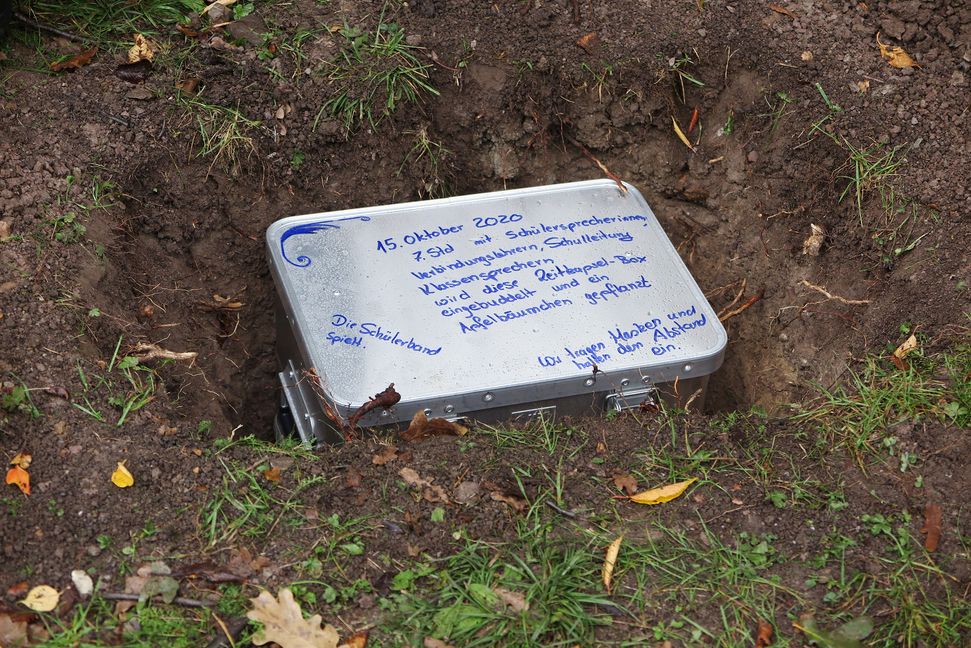 15. Oktober 2020
7. Std mit Schülersprecherinnen,
Verbindungslehrern, Schulleitung
Klassensprechern
wird diese Zeitkapsel-Box
eingebuddelt und ein
Apfelbäumchen gepflanzt
Die Schülerband
spielt.
Wir tragen Masken und
halten den Abstand
ein.